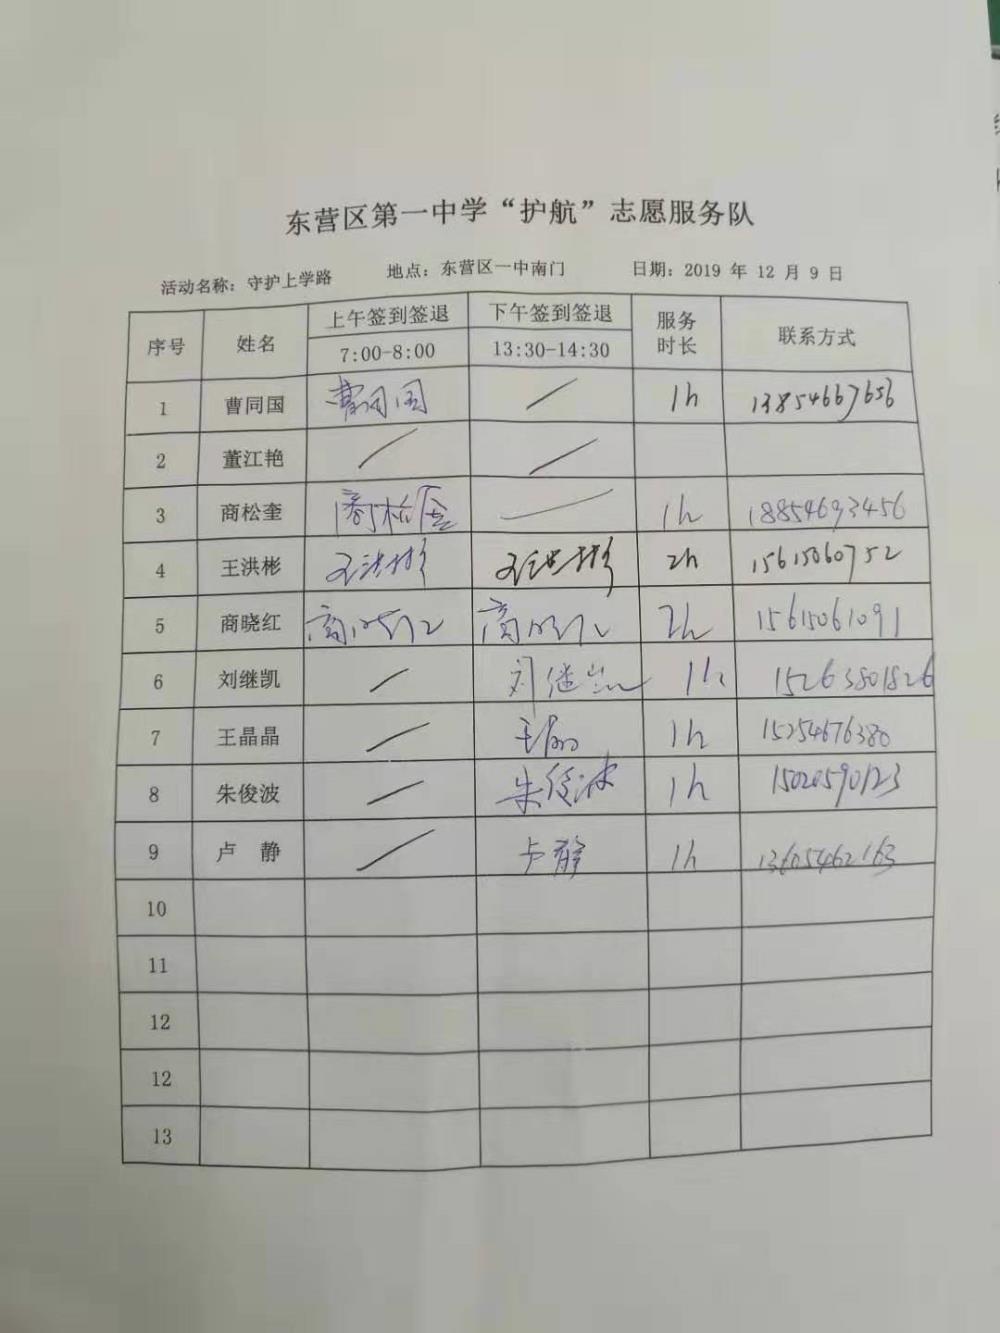 东营区第一中学“护航”志愿服务队
活动名称：守护上学路 地点：东营区一中南门 日期：2019 年 12 月 9 日
序号 姓名 上午签到签退 下午签到签退 服务时长 联系方式
7:00-8:00 13:30-14:30
1 曹同国 曹同国 / 1h 13854667656
2 董江艳 / /
3 商松奎 商松奎 / 1h 18854693456
4 王洪彬 王洪彬 王洪彬 2h 15615060752
5 商晓红 商晓红 商晓红 2h 15615061091
6 刘继凯 / 刘继凯 1h 15263801826
7 王晶晶 / 王晶晶 1h 15254676380
8 朱俊波 / 朱俊波 1h 15020590123
9 卢 静 / 卢静 1h 13605462163
10
11
12
12
13